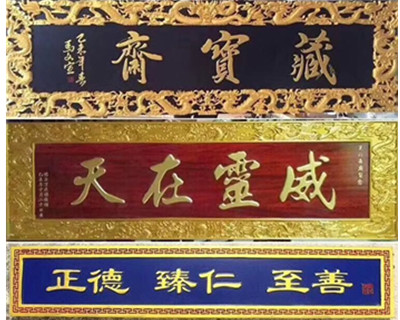 藏寶齋
乙未年春
威靈在天
正德 臻仁 至善